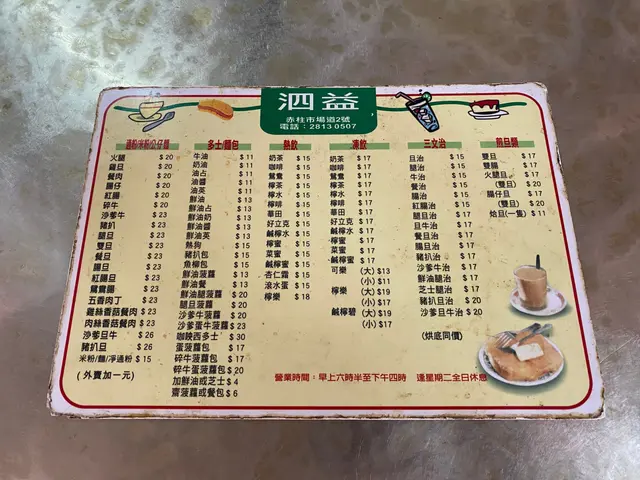 泗益
赤柱市場道2號
電話：2813 0507
通粉/米粉/公仔麵
火腿 $20
雞旦 $20
餐肉 $20
腸仔 $20
紅腸 $20
碎牛 $20
沙爹牛 $23
豬扒 $23
腿旦 $23
雙旦 $23
餐旦 $23
腸旦 $23
紅腸旦 $23
鴛鴦腸 $23
五香肉丁 $23
雞絲香菇餐肉 $26
肉絲香菇餐肉 $23
沙爹旦牛 $26
豬扒旦 $26
米粉/麵/凈通粉 $15
(外賣加一元)
多士/麵包
牛油 $11
奶油 $11
油占 $11
油醬 $11
油英 $11
鮮油 $13
鮮油占 $13
鮮油奶 $13
鮮油醬 $13
鮮油英 $13
熱狗 $15
豬扒包 $15
魚柳包 $15
鮮油菠蘿 $13
鮮油餐 $13
鮮油腿菠蘿 $20
腿旦菠蘿 $20
沙爹牛菠蘿 $20
沙爹蛋牛菠蘿 $23
咖央西多士 $30
蛋菠蘿包 $17
碎牛菠蘿包 $17
碎牛蛋菠蘿包 $20
加鮮油或芝士 $4
齋菠蘿或餐包 $6
熱飲
奶茶 $15
咖啡 $15
鴛鴦 $15
檸茶 $15
檸水 $15
檸啡 $15
華田 $15
好立克 $15
鹹檸水 $15
檸蜜 $15
菜蜜 $15
鹹檸蜜 $15
杏仁霜 $15
滾水蛋 $15
檸樂 $18
凍飲
奶茶 $17
咖啡 $17
鴛鴦 $17
檸茶 $17
檸水 $17
檸啡 $17
華田 $17
好立克 $17
鹹檸水 $17
檸蜜 $17
菜蜜 $17
鹹檸蜜 $17
可樂 (大) $13
(小) $11
檸樂 (大) $19
(小) $17
鹹檸碧 (大) $19
(小) $17
三文治
旦治 $15
腿治 $15
牛治 $15
餐治 $15
腸治 $15
紅腸治 $15
腿旦治 $17
旦牛治 $17
餐旦治 $17
腸旦治 $17
豬扒治 $17
沙爹牛治 $17
鮮油腿治 $17
芝士腿治 $17
豬扒旦治 $20
沙爹旦牛治 $20
(烘底同價)
煎旦類
雙旦 $17
雙腸 $17
火腿旦 $17
(雙旦) $20
腸仔旦 $17
(雙旦) $20
烚旦(一隻) $11
營業時間：早上六時半至下午四時 逢星期二全日休息